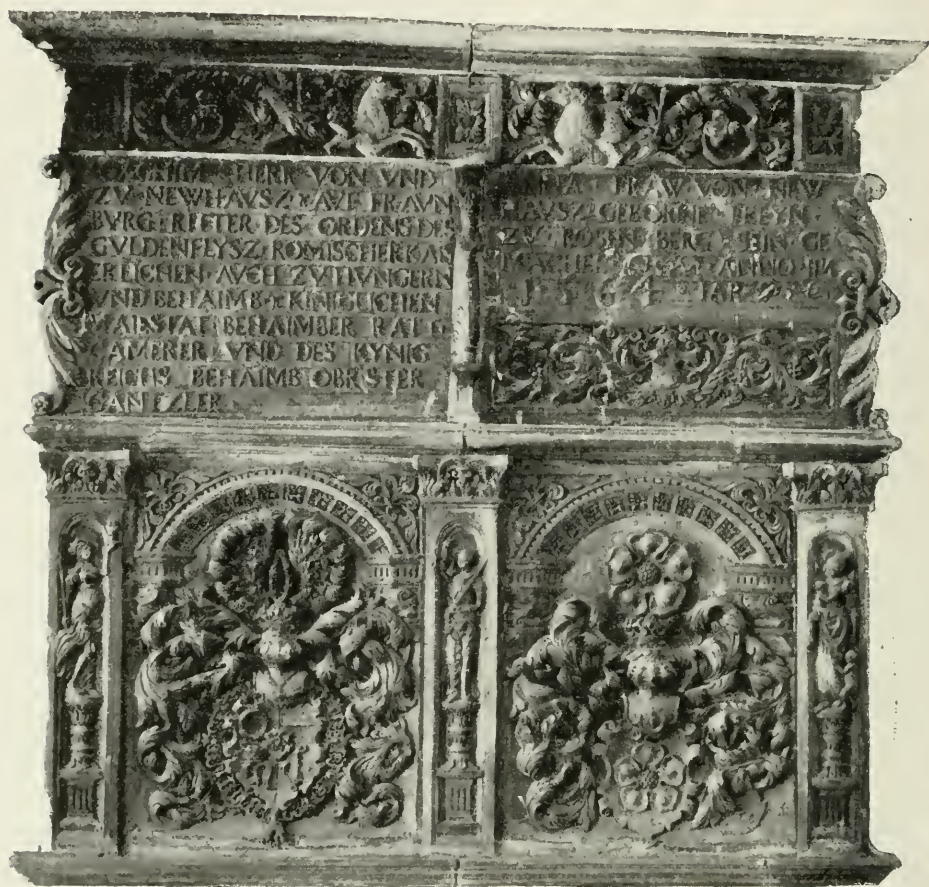 HERR · VON · VND
ZV · NEWHAVSZ · AVF · FRAVN
BVRG · RITTER · DES · ORDENS · DES
GVLDENFLYSZ · ROMISCHER
AVCH · ZV · HVNGERN
VND BEHAIMB · KINIGLICHEN
MAIESTAT BEHAIMBER RATT
CAMERER VND DES KYNIG
REICHS BEHAIMB OBRISTER
CANTZLER
ANNA · FRAW · VON · NEW
HAVSZ · GEBORNE · FREYN ·
ZV · ROSENBERG · EIN · GE
ANNO · IM
IAR